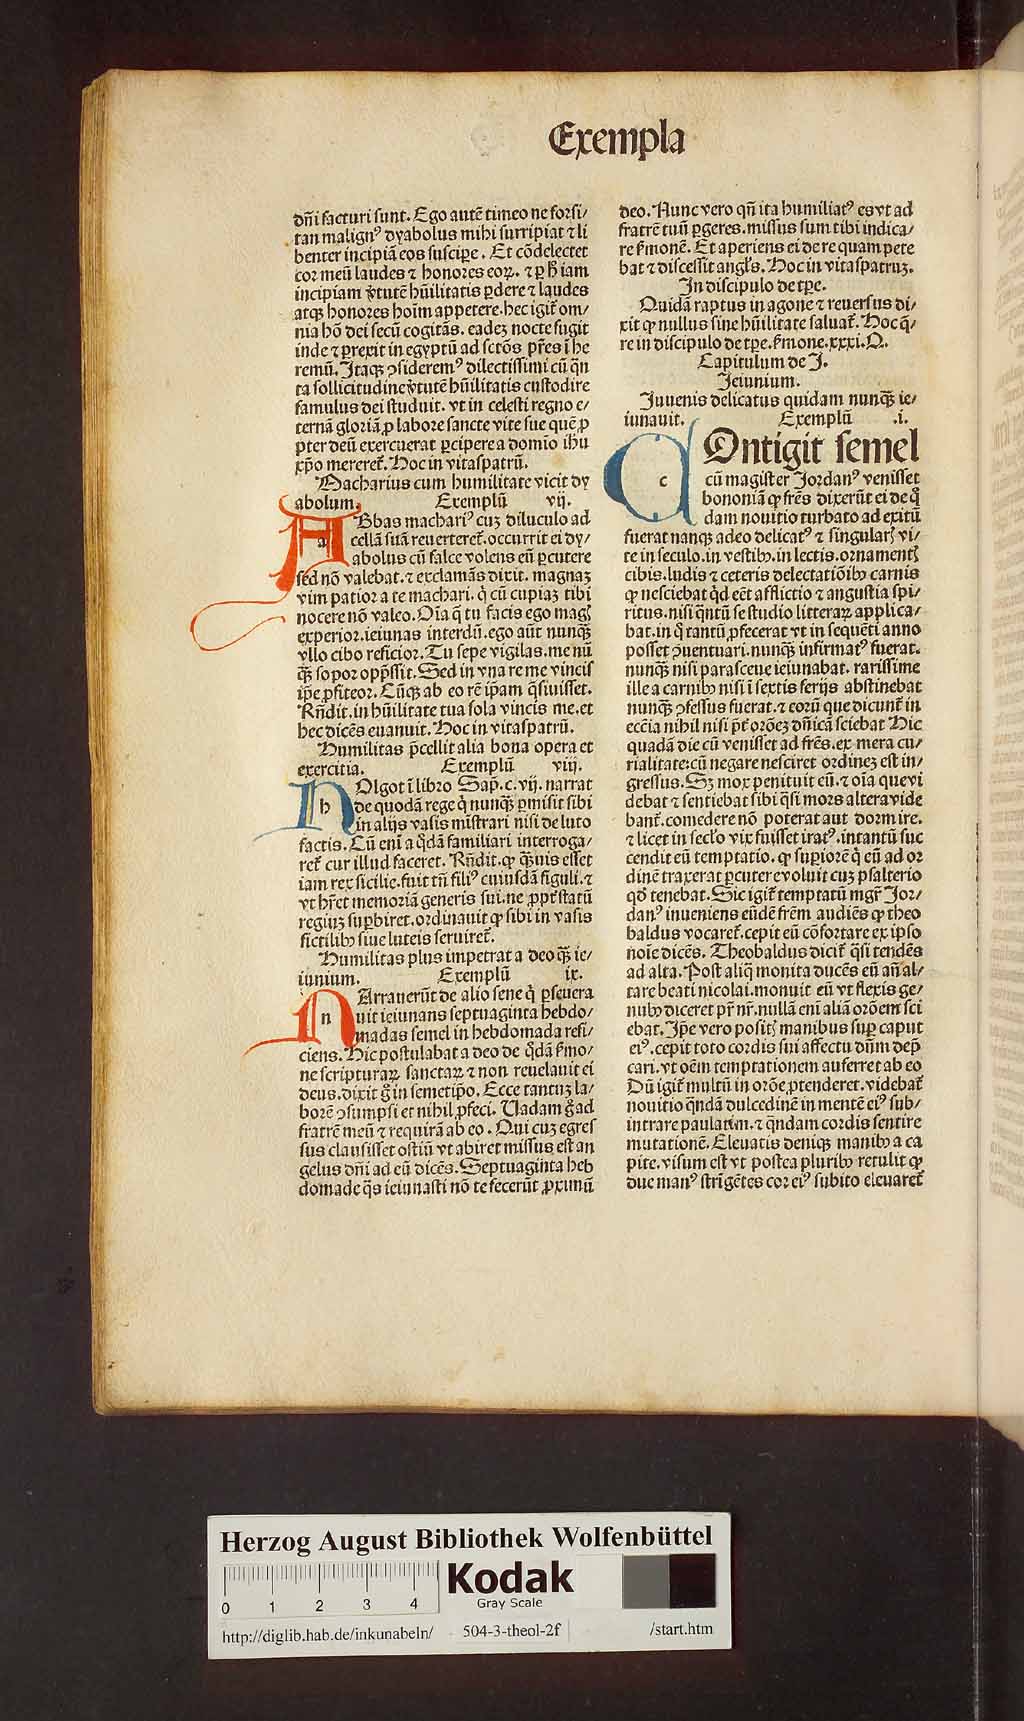 Exempla
dñi facturi sunt. Ego autē timeo ne forsi/
tan malignꝰ dyabolus mihi surripiat ⁊ li
benter incipiā eos suscipe. Et cōdelectet
cor meū laudes ⁊ honores eoꝝ. ⁊ ꝑ h̄ iam
incipiam v̓tutē hūilitatis ꝑdere ⁊ laudes
atqꝫ honores hoīm appetere. hec igit̄ om/
nia hō dei secū cogitās. eadeꝫ nocte fugit
inde ⁊ ꝑrexit in egyptū ad sctōs pr̄es ī he
remū. Itaqꝫ ꝯsideremꝰ dilectissimi cū q̄n
ta sollicitudine v̓tutē hūilitatis custodire
famulus dei studuit. vt in celesti regno e/
ternā gloriā ꝓ labore sancte vite sue quē ꝓ
pter deū exercuerat ꝑcipere a domīo ihu
xp̄o mereret̄. Hoc in vitaspatrū.
Macharius cum humilitate vicit dy
abolum. Exemplū vij.
A a Bbas machariꝰ cuꝫ diluculo ad
cellā suā reuerteret̄. occurrit ei dy/
abolus cū falce volens eū ꝑcutere
sed nō valebat. ⁊ exclamās dixit. magnaꝫ
vim patior a te machari. q̓ cū cupiaꝫ tibi
nocere nō valeo. Oīa q̄ tu facis ego magꝭ
experior. ieiunas interdū. ego aūt nunqꝫ̄
vllo cibo reficior. Tu sepe vigilas. me nū
qꝫ̄ sopor opp̄ssit. Sed in vna re me vincis
ip̄e ꝓfiteor. Cūqꝫ ab eo rē ip̄am q̄siuisset.
Rn̄dit. in hūilitate tua sola vincis me. et
hec dicēs euanuit. Hoc in vitaspatrū.
Humilitas p̄cellit alia bona opera et
exercitia. Exemplū viij.
H h Olgot ī libro Sap̄. c. vij. narrat
de quodā rege q̓ nunqꝫ̄ ꝑmisit sibi
in alijs vasis mīstrari nisi de luto
factis. Cū enī a q̓dā familiari interroga/
ret̄ cur illud faceret. Rn̄dit. ꝙ qꝫ̄uis esset
iam rex sicilie. fuit tn̄ filiꝰ cuiusdā figuli. ⁊
vt hr̄et memoriā generis sui. ne ꝓpt̄ statū
regiuꝫ suꝑbiret. ordinauit ꝙ sibi in vasis
fictilibꝫ siue luteis seruiret̄.
Humilitas plus impetrat a deo qꝫ̄ ie/
iunium. Exemplū ix.
N n Arrauerūt de alio sene q̓ ꝑseuera
uit ieiunans septuaginta hebdo/
madas semel in hebdomada refi/
ciens. Hic postulabat a deo de q̓dā ẜmo/
ne scripturaꝝ sanctaꝝ ⁊ non reuelauit ei
deus. dixit g̊ in semetip̄o. Ecce tantuꝫ la/
borē ꝯsumpsi et nihil ꝓfeci. Vadam g̊ ad
fratrē meū ⁊ requirā ab eo. Qui cuꝫ egres
sus clausisset ostiū vt abiret missus est an
gelus dn̄i ad eū dicēs. Septuaginta heb
domade q̄s ieiunasti nō te fecerūt ꝓximū
deo. Nunc vero qn̄ ita humiliatꝰ es vt ad
fratrē tuū ꝑgeres. missus sum tibi indica/
re ẜmonē. Et aperiens ei de re quam pete
bat ⁊ discessit angl̄s. Hoc in vitaspatruꝫ.
In discipulo de tꝑe.
Quidā raptus in agone ⁊ reuersus di/
xit ꝙ nullus sine hūilitate saluat̄. Hoc q̄/
re in discipulo de tꝑe. ẜmone. xxxi. Q.
Capitulum de J.
Jeiunium.
Juuenis delicatus quidam nunqꝫ̄ ie/
iunauit. Exemplū .i.
C c Ontigit semel
cū magister Jordanꝰ venisset
bononiā ꝙ fr̄es dixerūt ei de q̓
dam nouitio turbato ad exitū
fuerat nanqꝫ adeo delicatꝰ ⁊ singularꝭ vi/
te in seculo. in vestibꝫ. in lectis. ornamentꝭ
cibis. ludis ⁊ ceteris delectatiōibꝫ carnis
ꝙ nesciebat q̓d eēt afflictio ⁊ angustia spi/
ritus. nisi q̄ntū se studio litteraꝝ applica/
bat. in q̓ tantū ꝓfecerat vt in sequēti anno
posset ꝯuentuari. nunqꝫ̄ infirmatꝰ fuerat.
nunqꝫ̄ nisi parasceue ieiunabat. rarissime
ille a carnibꝫ nisi ī sextis ferijs abstinebat
nunqꝫ̄ ꝯfessus fuerat. ⁊ eorū que dicunt̄ in
ecc̄ia nihil nisi pr̄t orōeꝫ dn̄icā sciebat Hic
quadā die cū venisset ad fr̄es. ex mera cu/
rialitate: cū negare nesciret ordineꝫ est in/
gressus. Sꝫ mox penituit eū. ⁊ oīa que vi
debat ⁊ sentiebat sibi q̄si mors altera vide
bant̄. comedere nō poterat aut dormire.
⁊ licet in secl̄o vix fuisset iratꝰ. intantū suc
cendit eū temptatio. ꝙ superiorē q̓ eū ad or
dinē traxerat ꝑcutere voluit cuꝫ psalterio
qd̄ tenebat. Sic igit̄ temptatū mgr̄ Jor/
danꝰ inueniens eūdē fr̄em audiēs ꝙ theo
baldus vocaret̄. cepit eū cōfortare ex ipso
noīe dicēs. Theobaldus dicit̄ q̄si tendēs
ad alta. Post aliq̄ monita ducēs eū an̄ al/
tare beati nicolai. monuit eū vt flexis ge/
nubꝫ diceret pr̄ nr̄. nullā enī aliā orōem sci
ebat. Ip̄e vero positꝭ manibus suꝑ caput
eiꝰ. cepit toto cordis sui affectu dn̄m dep̄
cari. vt oēm temptationem auferret ab eo
Dū igit̄ multū in orōe ꝓtenderet. videbat̄
nouitio q̄ndā dulcedinē in mentē eiꝰ sub/
intrare paulatim. ⁊ q̄ndam cordis sentire
mutationē. Eleuatis deniqꝫ manibꝫ a ca
pite. visum est vt postea pluribꝫ retulit ꝙ
due manꝰ strīgētes cor eiꝰ subito eleuaret̄
Herzog August Bibliothek Wolfenbüttel
0 1 2 3 4
Kodak
Gray Scale
http://diglib.hab.de/inkunabeln/ 504-3-theol-2f /start.htm